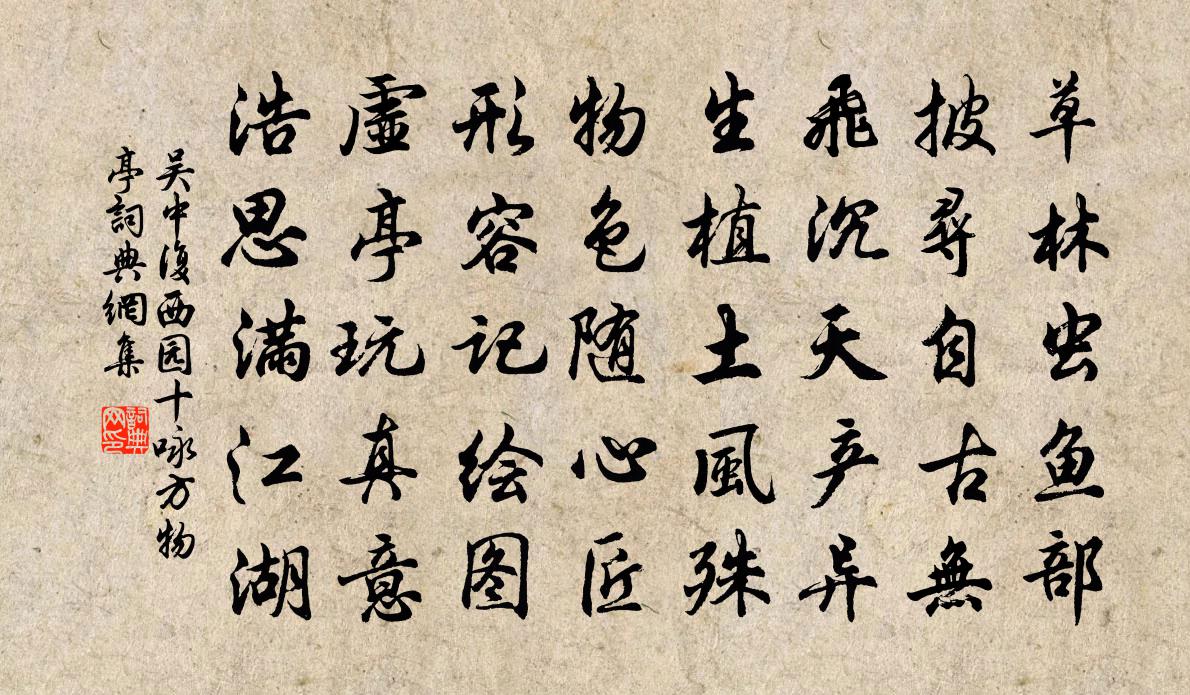 草林虫鱼部
披尋自古無
飛沉天产异
生植土風殊
物色随心匠
形容记绘图
虚亭玩真意
浩思满江湖
吴中復西园十咏方物
亭詞典網集
詞典网印